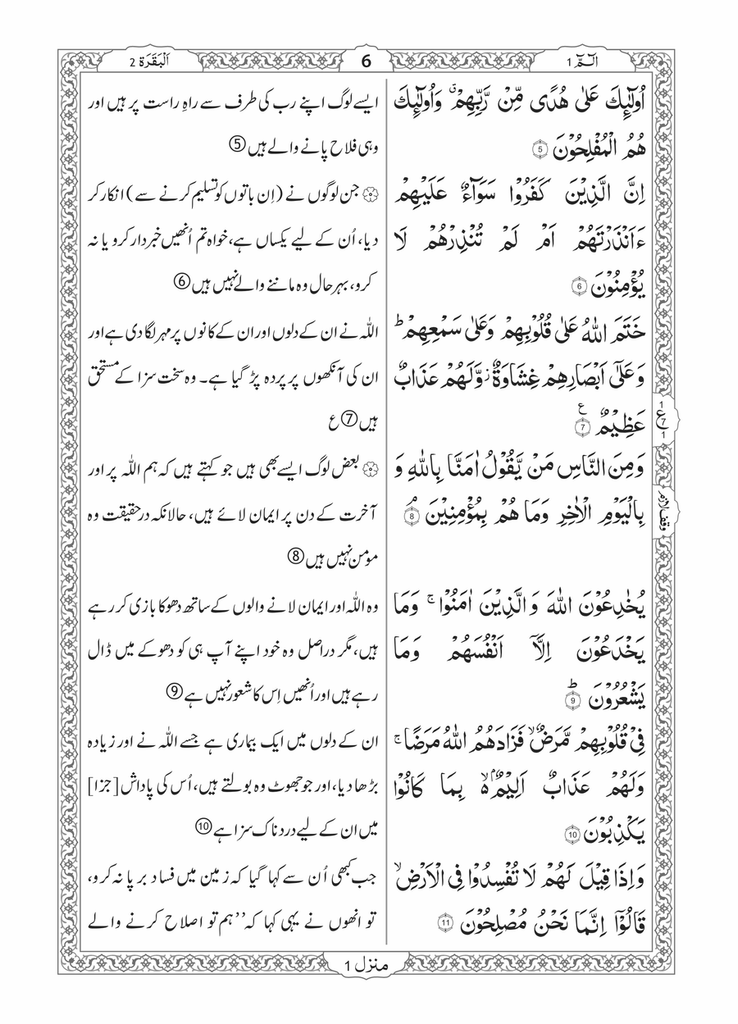 الٓمّٓ 1
6
اَلْبَقَرَة 2
اُولٰٓئِكَ عَلٰى هُدًى مِّنْ رَّبِّهِمْ ۙ وَاُولٰٓئِكَ
هُمُ الْمُفْلِحُوْنَ 5
اِنَّ الَّذِيْنَ كَفَرُوْا سَوَآءٌ عَلَيْهِمْ
ءَاَنْذَرْتَهُمْ اَمْ لَمْ تُنْذِرْهُمْ لَا
يُؤْمِنُوْنَ 6
خَتَمَ اللّٰهُ عَلٰى قُلُوْبِهِمْ وَعَلٰى سَمْعِهِمْ ؕ
وَعَلٰٓى اَبْصَارِهِمْ غِشَاوَةٌ ؗ وَّلَهُمْ عَذَابٌ
عَظِيْمٌ 7 ع
وَمِنَ النَّاسِ مَنْ يَّقُوْلُ اٰمَنَّا بِاللّٰهِ وَ
بِالْيَوْمِ الْاٰخِرِ وَمَا هُمْ بِمُؤْمِنِيْنَ ۘ 8
يُخٰدِعُوْنَ اللّٰهَ وَالَّذِيْنَ اٰمَنُوْا ۚ وَمَا
يَخْدَعُوْنَ اِلَّآ اَنْفُسَهُمْ وَمَا
يَشْعُرُوْنَ ؕ 9
فِيْ قُلُوْبِهِمْ مَّرَضٌ ۙ فَزَادَهُمُ اللّٰهُ مَرَضًا ۚ
وَلَهُمْ عَذَابٌ اَلِيْمٌۢ ۙ بِمَا كَانُوْا
يَكْذِبُوْنَ 10
وَاِذَا قِيْلَ لَهُمْ لَا تُفْسِدُوْا فِى الْاَرْضِ ۙ
قَالُوْٓا اِنَّمَا نَحْنُ مُصْلِحُوْنَ 11
ایسے لوگ اپنے رب کی طرف سے راہِ راست پر ہیں اور
وہی فلاح پانے والے ہیں 5
۞ جن لوگوں نے (اِن باتوں کو تسلیم کرنے سے) انکار کر
دیا، اُن کے لیے یکساں ہے، خواہ تم اُنھیں خبردار کرو یا نہ
کرو، بہرحال وہ ماننے والے نہیں ہیں 6
اللہ نے ان کے دلوں اور ان کے کانوں پر مہر لگا دی ہے اور
ان کی آنکھوں پر پردہ پڑ گیا ہے۔ وہ سخت سزا کے مستحق
ہیں 7 ع
۞ بعض لوگ ایسے بھی ہیں جو کہتے ہیں کہ ہم اللہ پر اور
آخرت کے دن پر ایمان لائے ہیں، حالانکہ درحقیقت وہ
مومن نہیں ہیں 8
وہ اللہ اور ایمان لانے والوں کے ساتھ دھوکا بازی کر رہے
ہیں، مگر دراصل وہ خود اپنے آپ ہی کو دھوکے میں ڈال
رہے ہیں اور اُنھیں اِس کا شعور نہیں ہے 9
ان کے دلوں میں ایک بیماری ہے جسے اللہ نے اور زیادہ
بڑھا دیا، اور جو جھوٹ وہ بولتے ہیں، اُس کی پاداش [جزا]
میں ان کے لیے دردناک سزا ہے 10
جب کبھی اُن سے کہا گیا کہ زمین میں فساد برپا نہ کرو،
تو انھوں نے یہی کہا کہ ’’ہم تو اصلاح کرنے والے
1 ع 7 1
وقف لازم
منزل 1